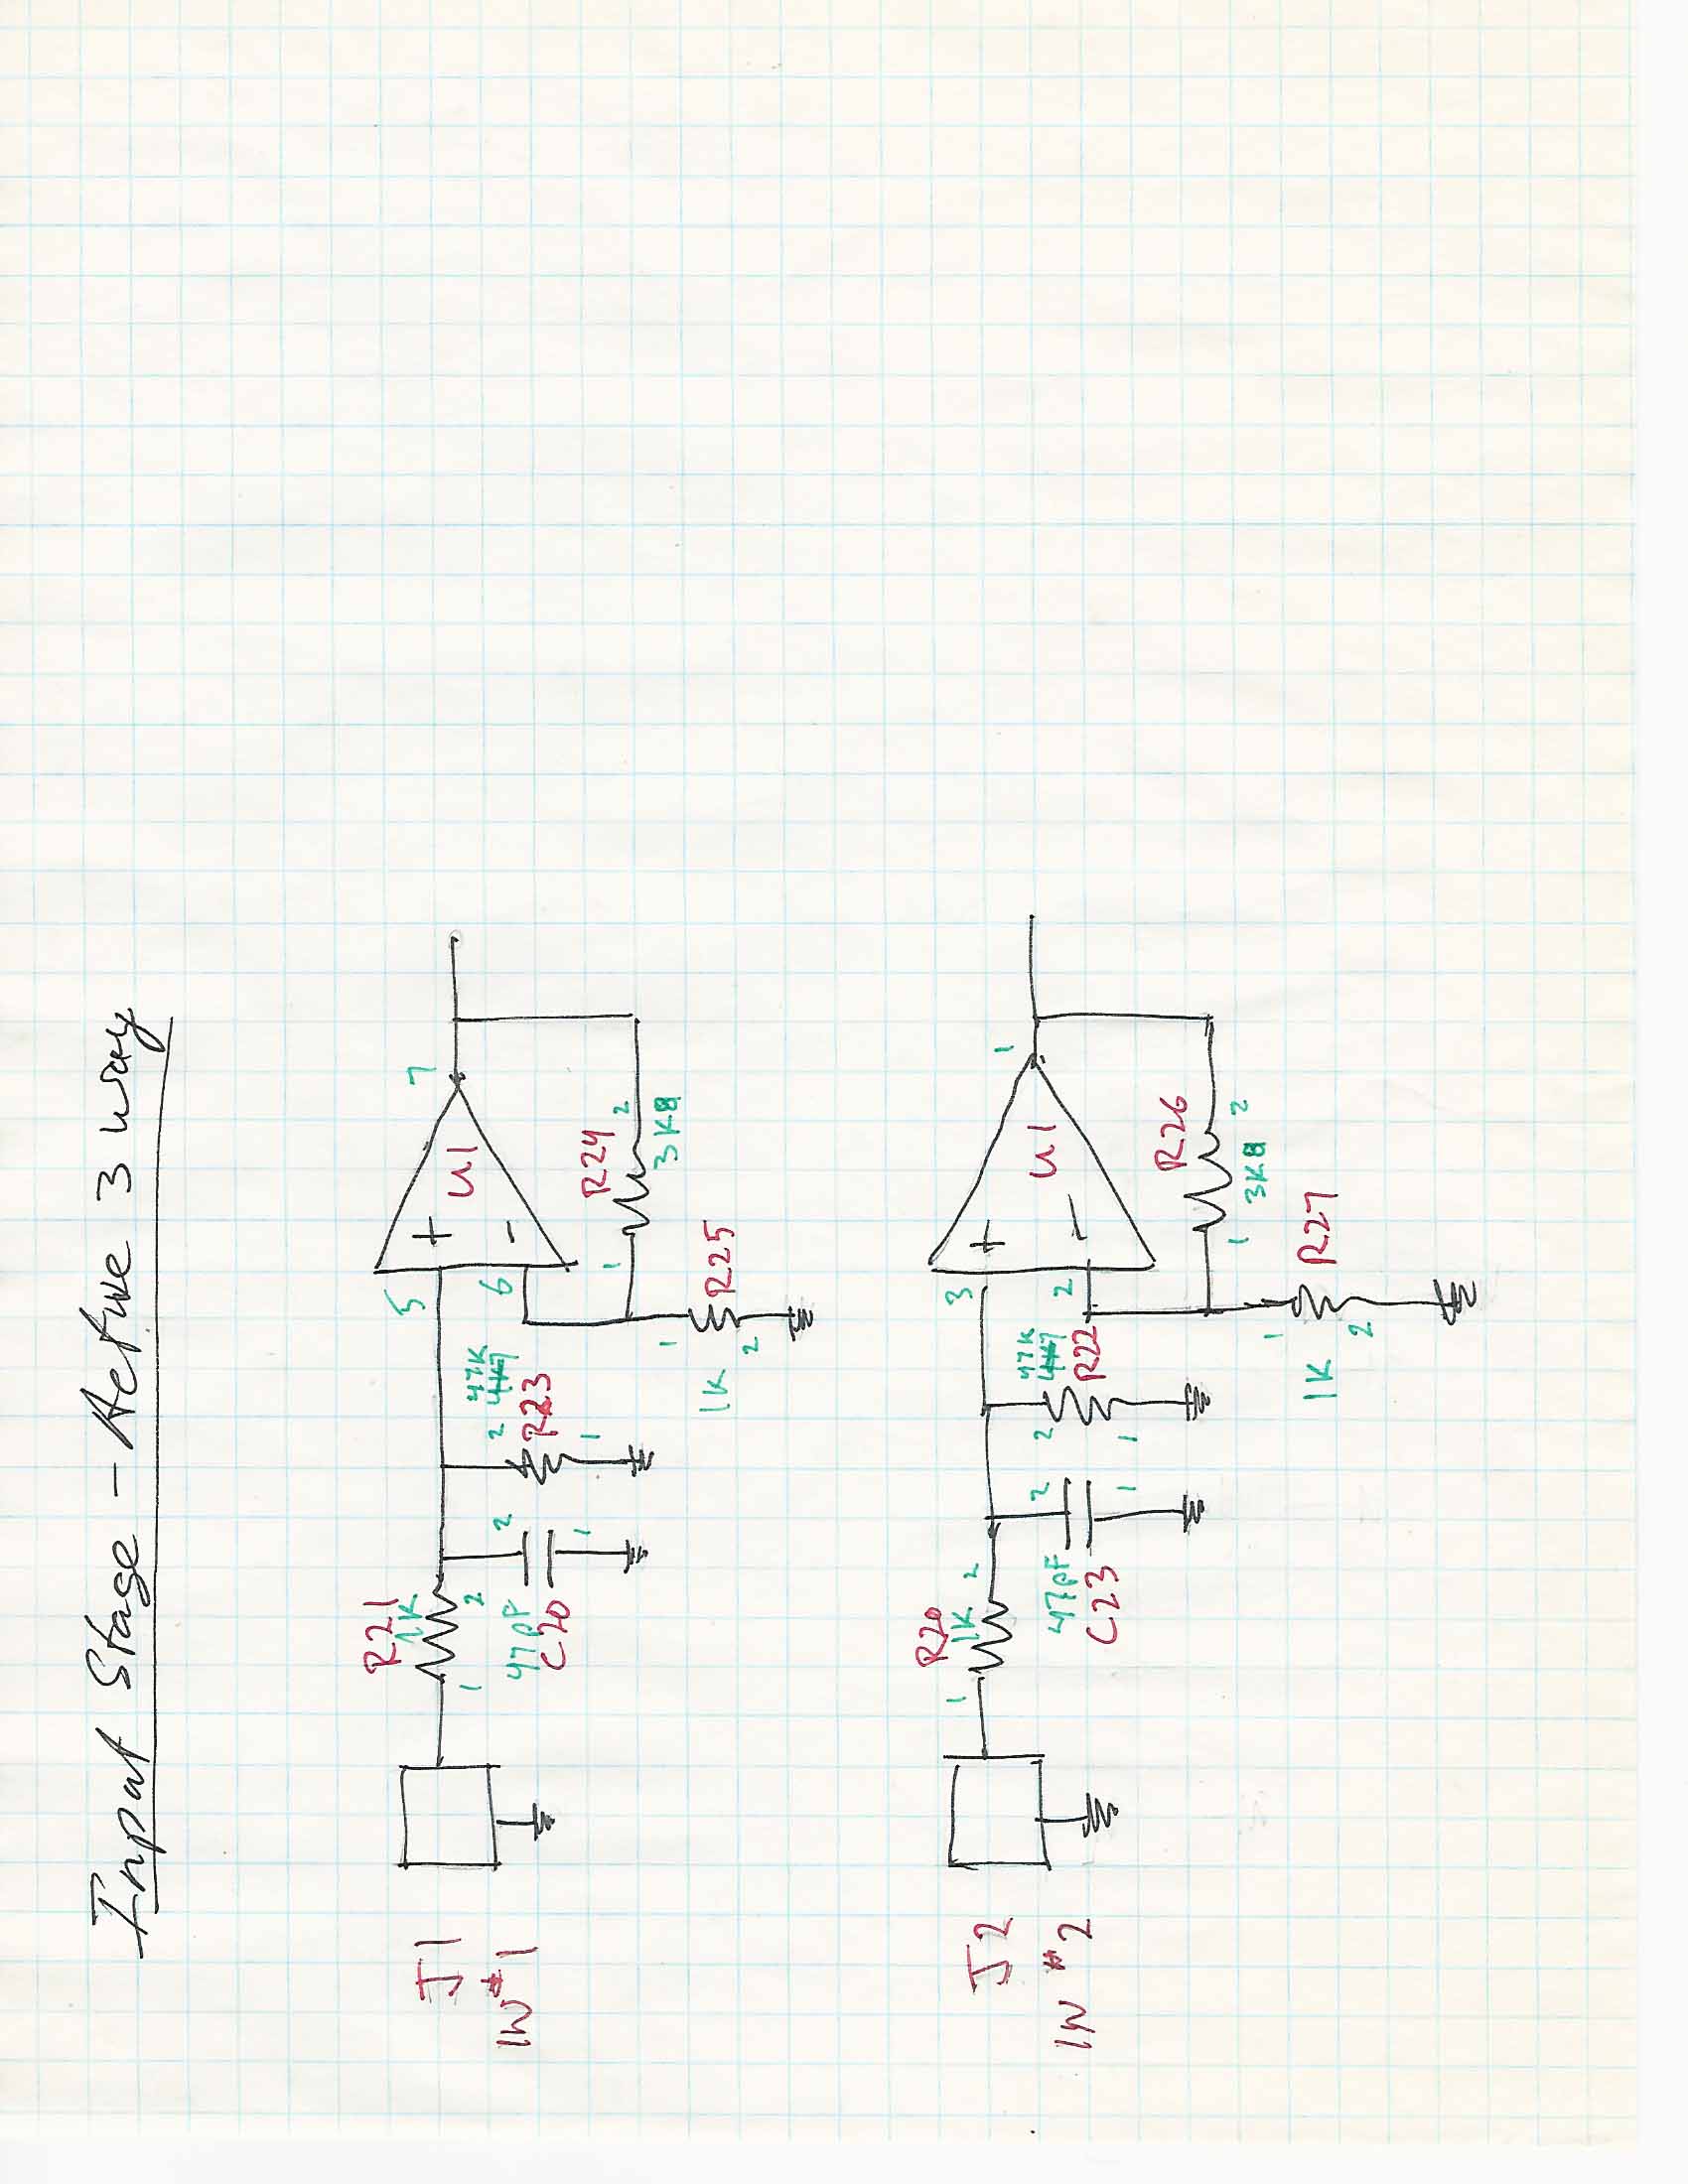 Input Stage - Active 3 way
J1
IN #1
R21
1K
1
2
47pF
C20
2
1
47K
4K7
R23
2
1
5
6
+
-
U1
7
R24
3K8
1
2
R25
1K
1
2
J2
IN #2
R20
1K
1
2
47pF
C23
2
1
47K
4K7
R22
2
1
3
2
+
-
U1
1
R26
3K8
1
2
R27
1K
1
2